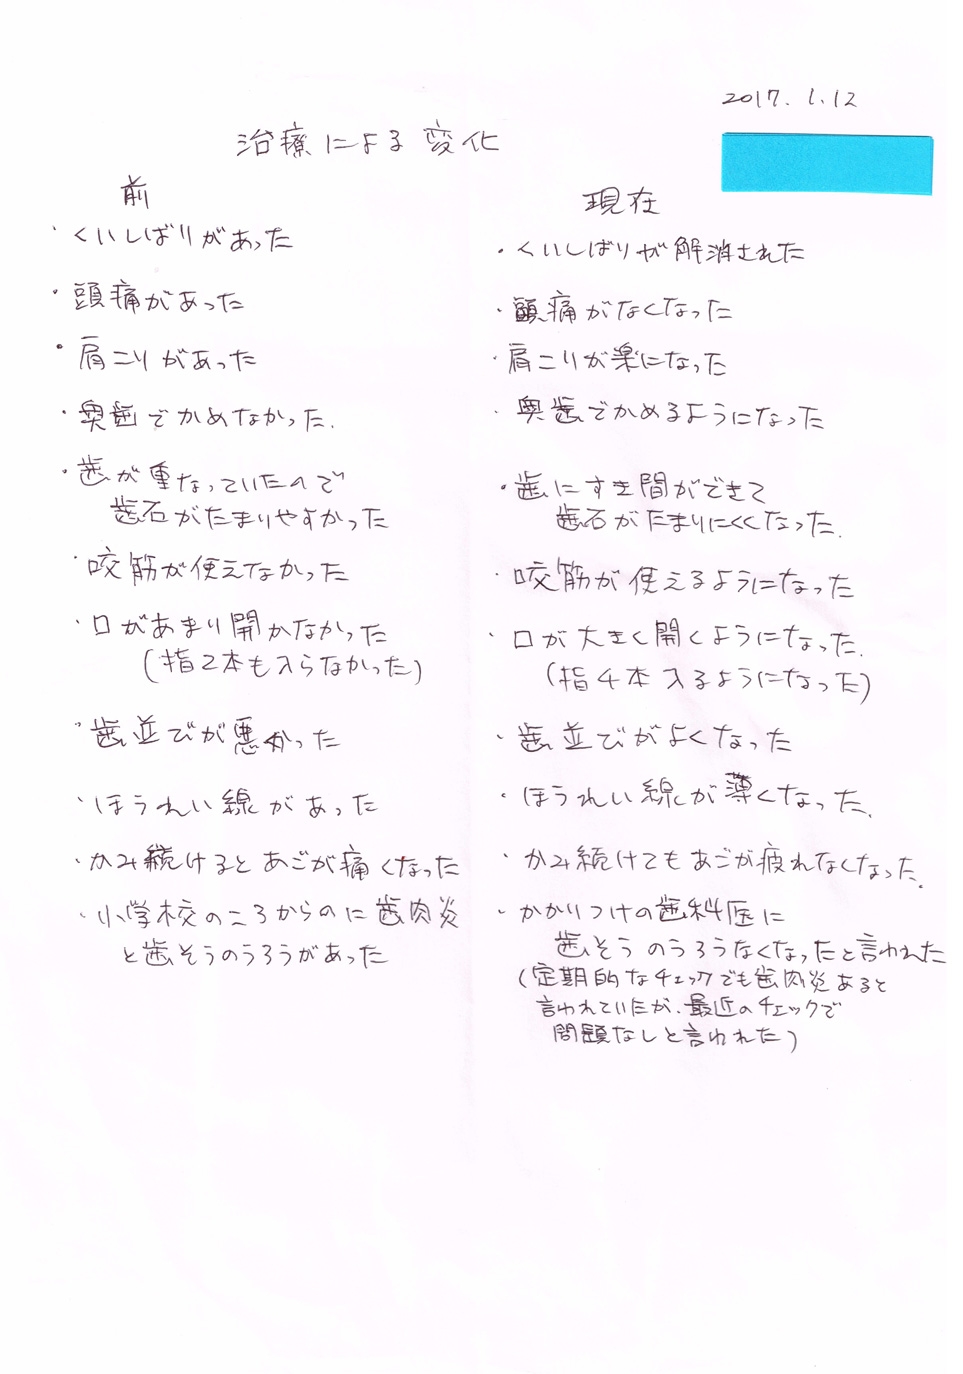 2017.1.12
治療による変化
前
・くいしばりがあった
・頭痛があった
・肩こりがあった
・奥歯でかめなかった.
・歯が重なっていたので
歯石がたまりやすかった
・咬筋が使えなかった
・口があまり開かなかった
(指2本も入らなかった)
・歯並びが悪かった
・ほうれい線があった
・かみ続けるとあごが痛くなった
・小学校のころからのに歯肉炎
と歯そうのうろうがあった
現在
・くいしばりが解消された
・頭痛がなくなった
・肩こりが楽になった
・奥歯でかめるようになった
・歯にすき間ができて
歯石がたまりにくくなった.
・咬筋が使えるようになった
・口が大きく開くようになった.
(指4本入るようになった)
・歯並びがよくなった
・ほうれい線が薄くなった.
・かみ続けてもあごが疲れなくなった.
・かかりつけの歯科医に
歯そうのうろうなくなったと言われた
(定期的なチェックでも歯肉炎あると
言われていたが、最近のチェックで
問題なしと言われた)